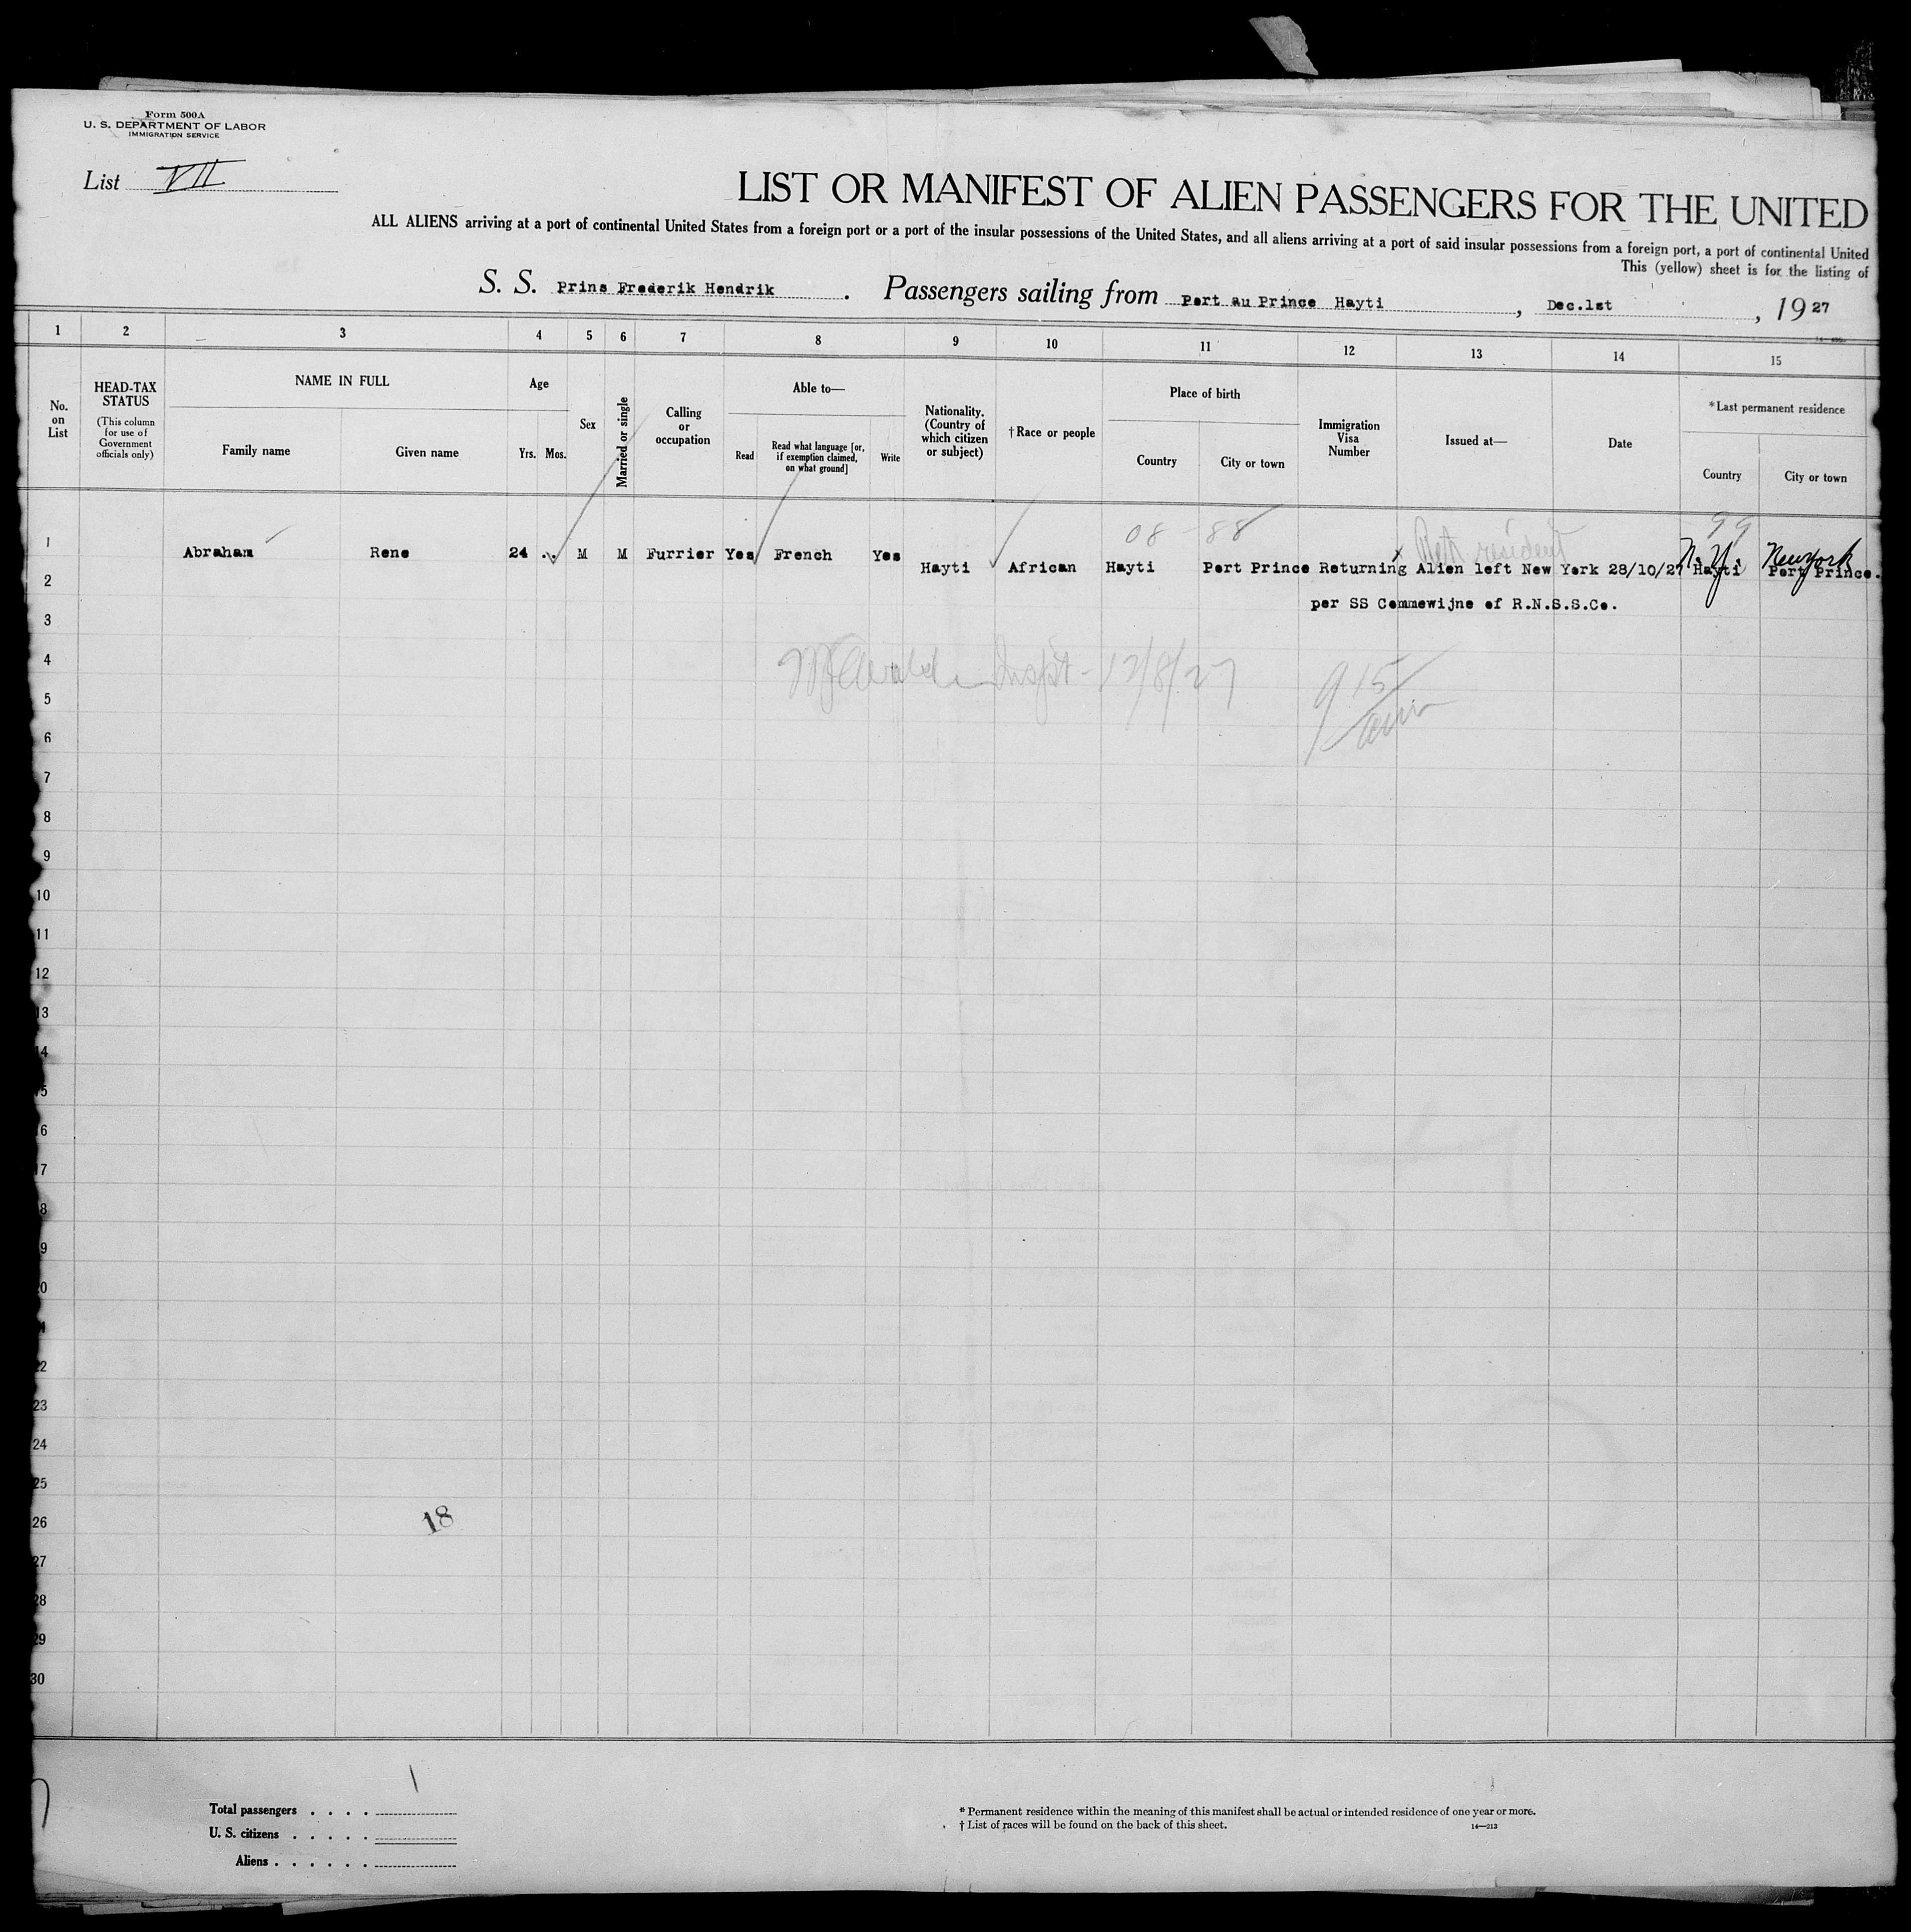 Form 500A
U. S. DEPARTMENT OF LABOR
IMMIGRATION SERVICE
List VII
LIST OR MANIFEST OF ALIEN PASSENGERS FOR THE UNITED
ALL ALIENS arriving at a port of continental United States from a foreign port or a port of the insular possessions of the United States, and all aliens arriving at a port of said insular possessions from a foreign port, a port of continental United
This (yellow) sheet is for the listing of
S. S. Prins Frederik Hendrik . Passengers sailing from Port au Prince Hayti , Dec.1st , 1927
1 2 3 4 5 6 7 8 9 10 11 12 13 14 15
No. on List
HEAD-TAX STATUS
(This column for use of Government officials only)
NAME IN FULL
Family name
Given name
Age
Yrs. Mos.
Sex
Married or single
Calling or occupation
Able to—
Read
Read what language [or, if exemption claimed, on what ground]
Write
Nationality. (Country of which citizen or subject)
†Race or people
Place of birth
Country
City or town
Immigration Visa Number
Issued at—
Date
*Last permanent residence
Country
City or town
08 - 88
resident
99
N.Y. New York
1 Abraham Rene 24 .. M M Furrier Yes French Yes Hayti African Hayti Port Prince Returning Alien left New York 28/10/27 Hayti Port Prince.
2
per SS Commewijne of R.N.S.S.Co.
3
4
Inspt - 12/8/27
915
5
6
7
8
9
10
11
12
13
14
15
16
17
18
19
20
21
22
23
24
25
26
18
27
28
29
30
1
Total passengers . . . .
U. S. citizens . . . . .
Aliens . . . . . .
* Permanent residence within the meaning of this manifest shall be actual or intended residence of one year or more.
† List of races will be found on the back of this sheet.
14—213